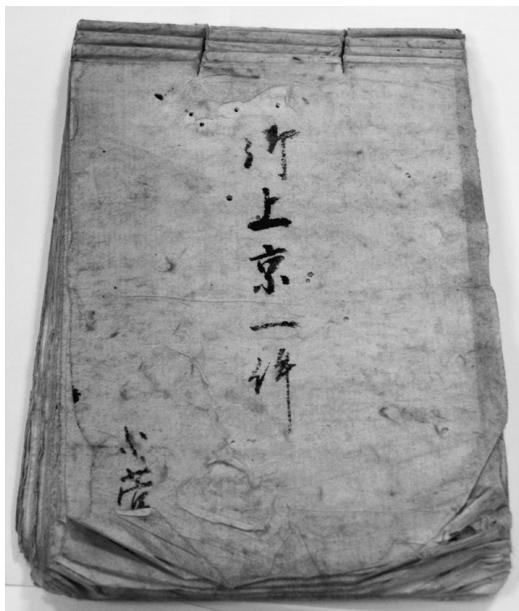 御上京一件
小菅